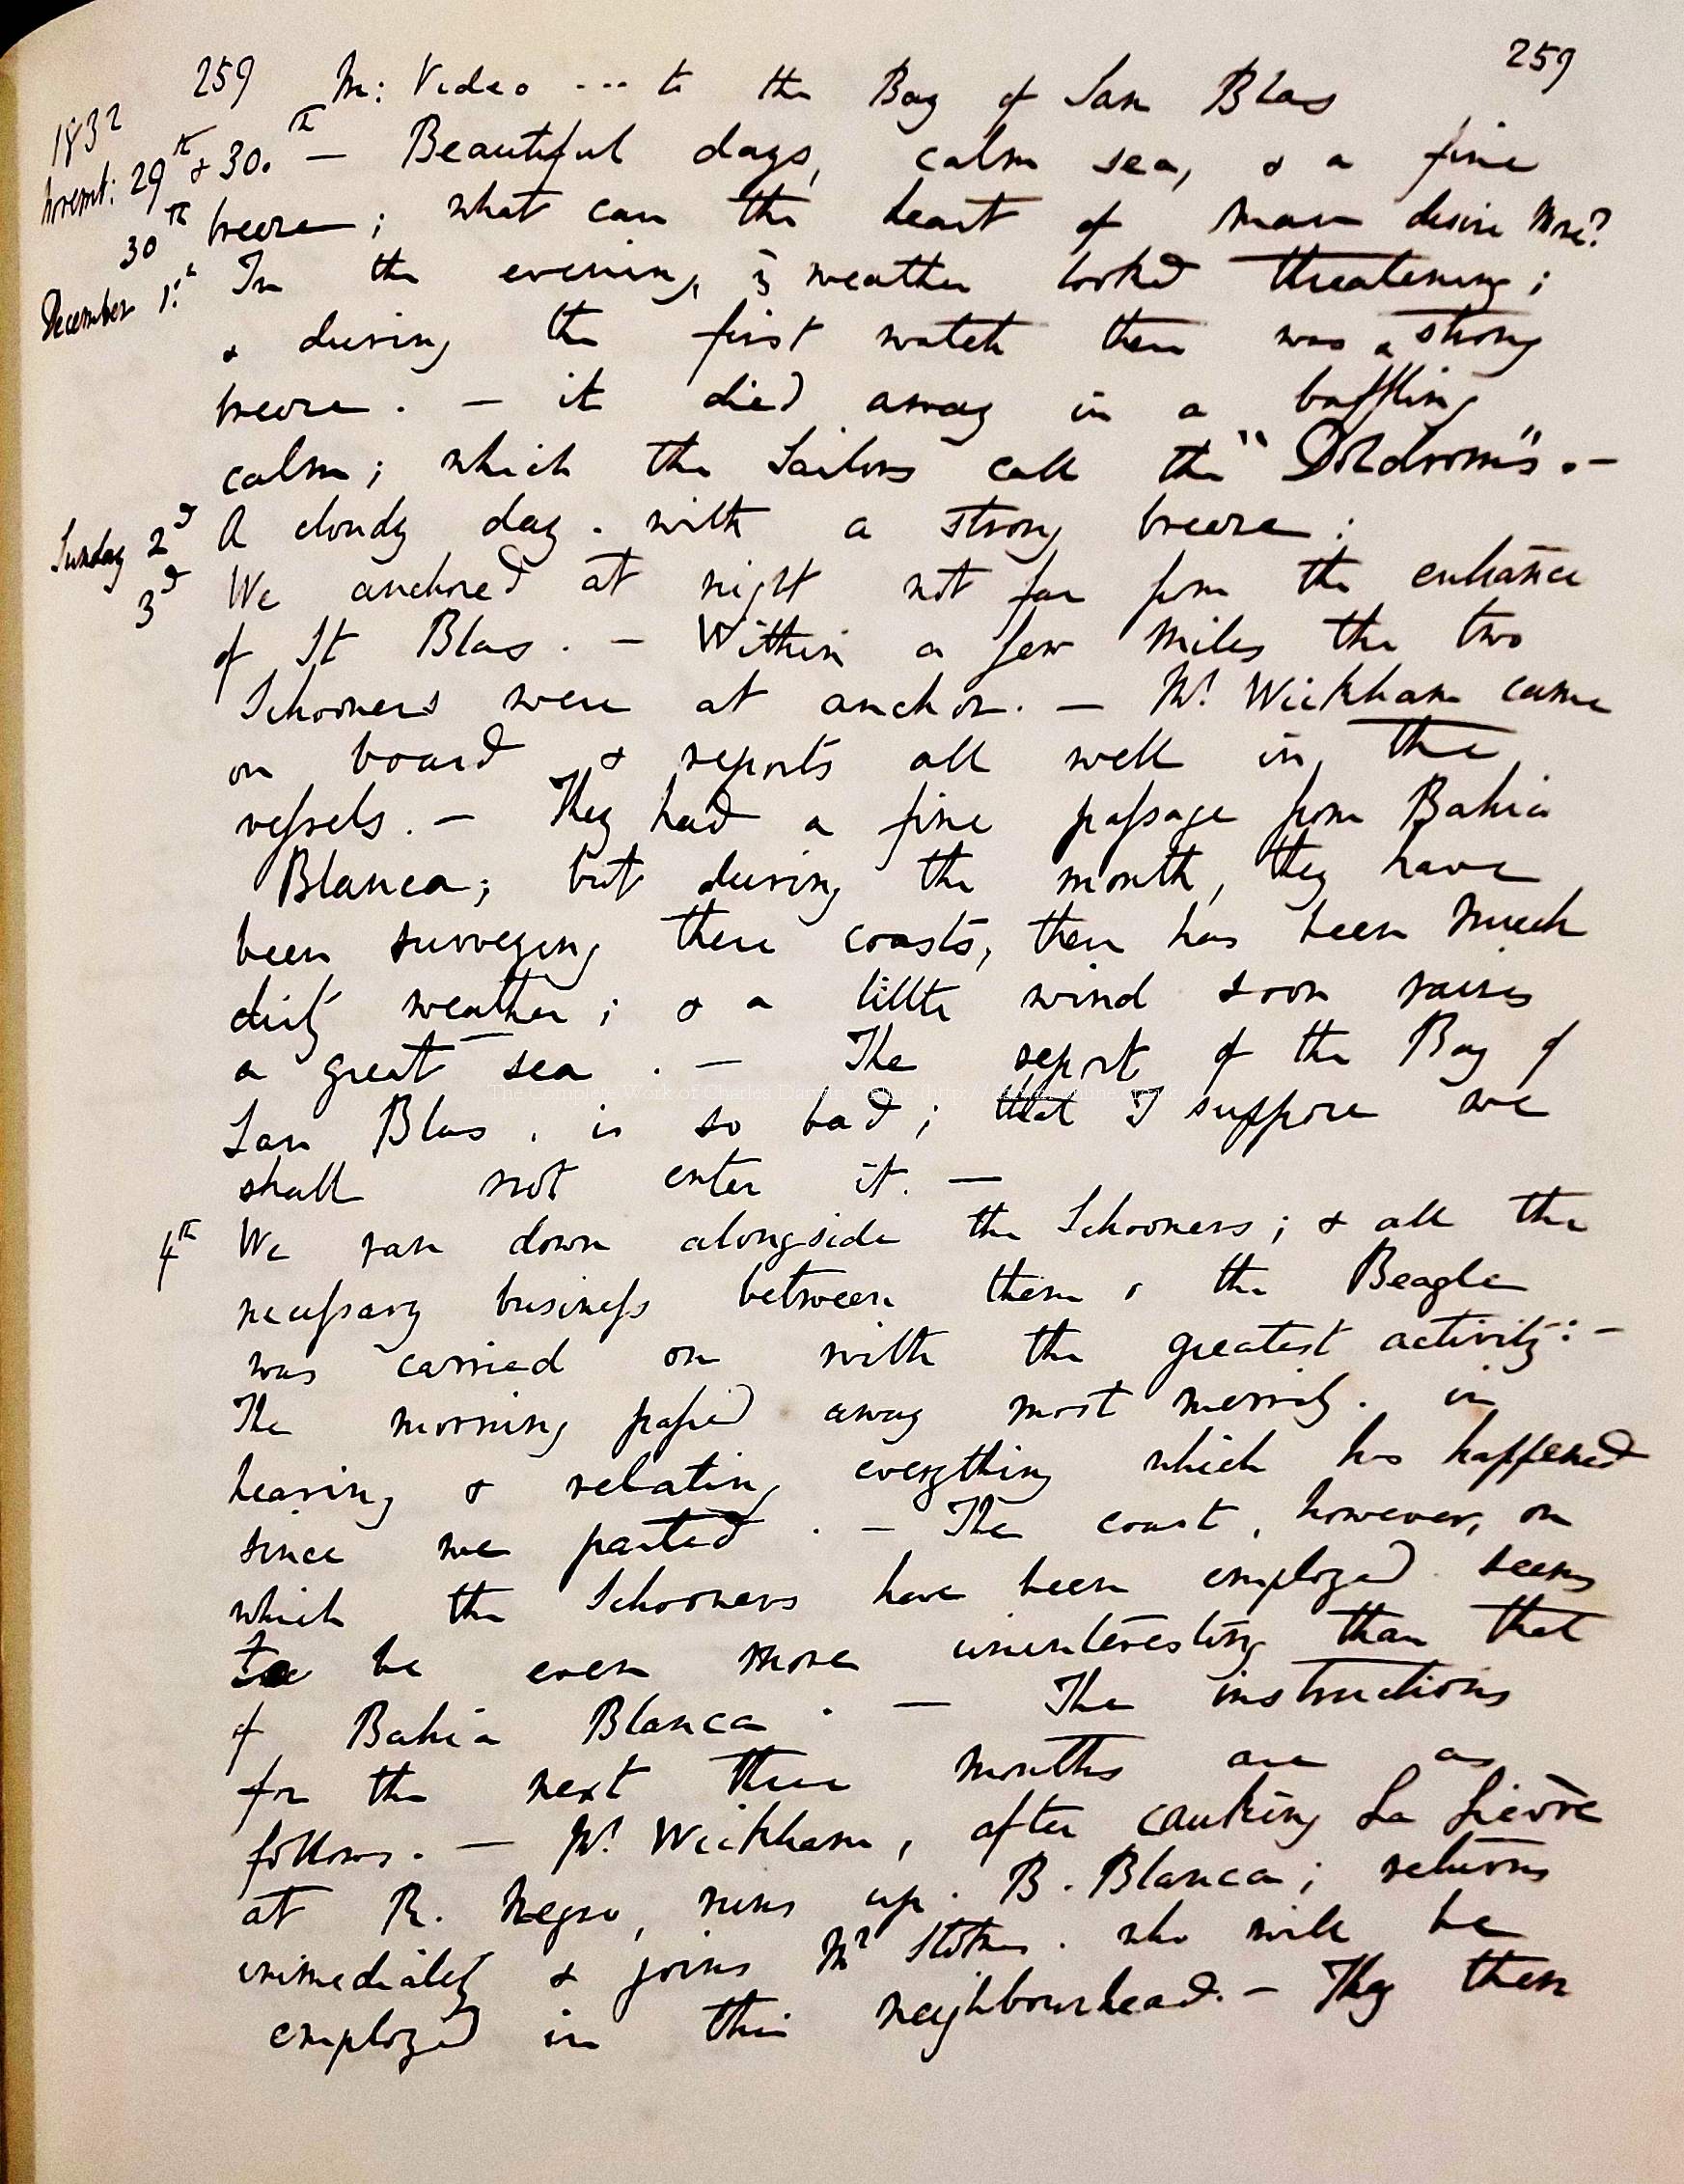 259 M: Video ... to the Bay of San Blas 259
1832
Novemt: 29th & 30.th — Beautiful days, calm sea, & a fine
30th breeze; what can the heart of man desire more?
December 1st In the evening, the weather looked threatening;
& during the first watch there was a strong
breeze. — it died away in a baffling
calm; which the Sailors call the "Doldroms". —
Sunday 2d A cloudy day. with a strong breeze:
3d We anchored at night not far from the entrance
of St Blas. — Within a few miles the two
Schooners were at anchor. — Mr Wickham came
on board & reports all well in the
vessels. — They had a fine passage from Bahia
Blanca; but during the month, they have
been surveying these coasts, there has been much
dirty weather; & a little wind soon raises
a great sea. — The report of the Bay of
San Blas, is so bad; that I suppose we
shall not enter it. —
4th We ran down alongside the Schooners; & all the
necessary business between them & the Beagle
was carried on with the greatest activity: —
The morning passed away most merrily. in
hearing & relating everything which has happened
since we parted. — The coast, however, on
which the Schooners have been employed seems
to be even more uninteresting than that
of Bahia Blanca. — The instructions
for the next three months are as
follows. — Mr Wickham, after caulking La Lievre
at R. Negro, runs up. B. Blanca; returns
immediately & joins Mr Stokes. who will be
employed in this neighbourhead. — They then